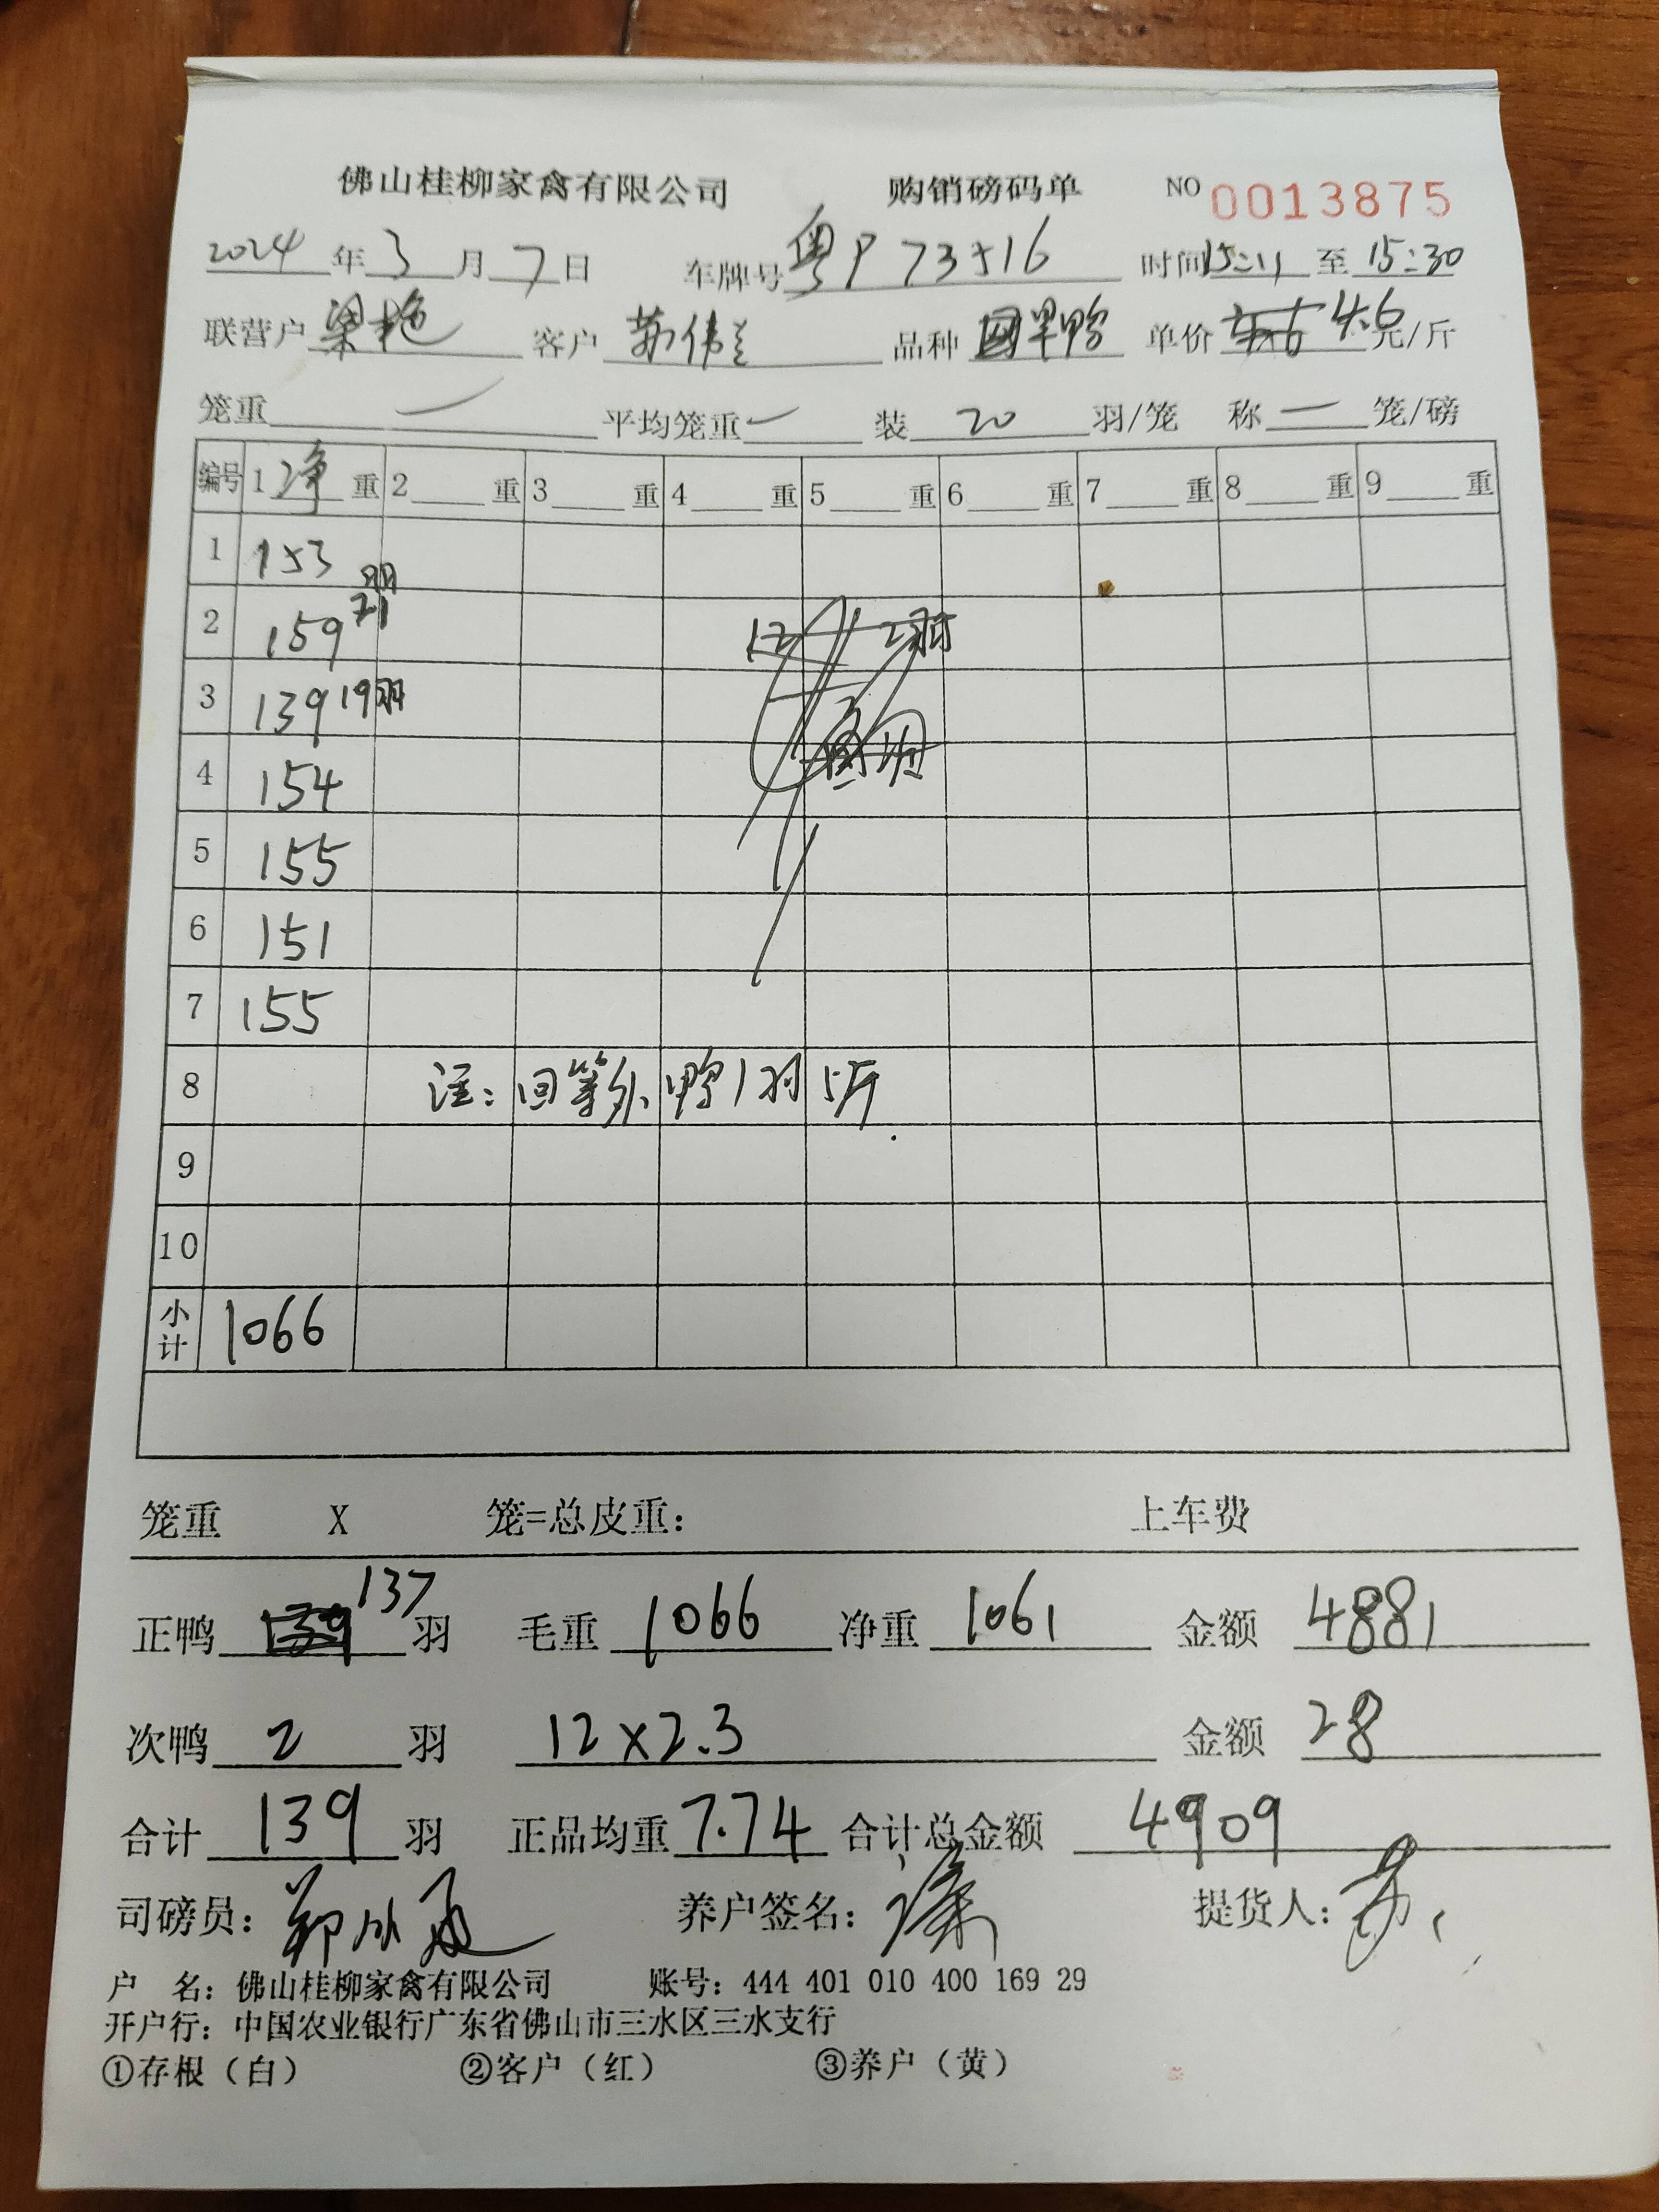 佛山桂柳家禽有限公司 购销磅码单 NO 0013875
2024 年 3 月 7 日 车牌号 粤P 73516 时间 15:11 至 15:30
联营户 梁艳 客户 苏伟兰 品种 单价 4.6 元/斤
笼重 一 平均笼重 一 装 20 羽/笼 称 一 笼/磅
编号 1 净 重 2 重 3 重 4 重 5 重 6 重 7 重 8 重 9 重
1 153
2 159 21羽
3 139 19羽
4 154
5 155
6 151
7 155
8 注:回等外鸭1羽5斤.
9
10
小计 1066
笼重 X 笼=总皮重: 上车费
正鸭 137 羽 毛重 1066 净重 1061 金额 4881
次鸭 2 羽 12×2.3 金额 28
合计 139 羽 正品均重 7.74 合计总金额 4909
司磅员: 养户签名: 提货人:
户 名: 佛山桂柳家禽有限公司 账号: 444 401 010 400 169 29
开户行: 中国农业银行广东省佛山市三水区三水支行
①存根(白) ②客户(红) ③养户(黄)